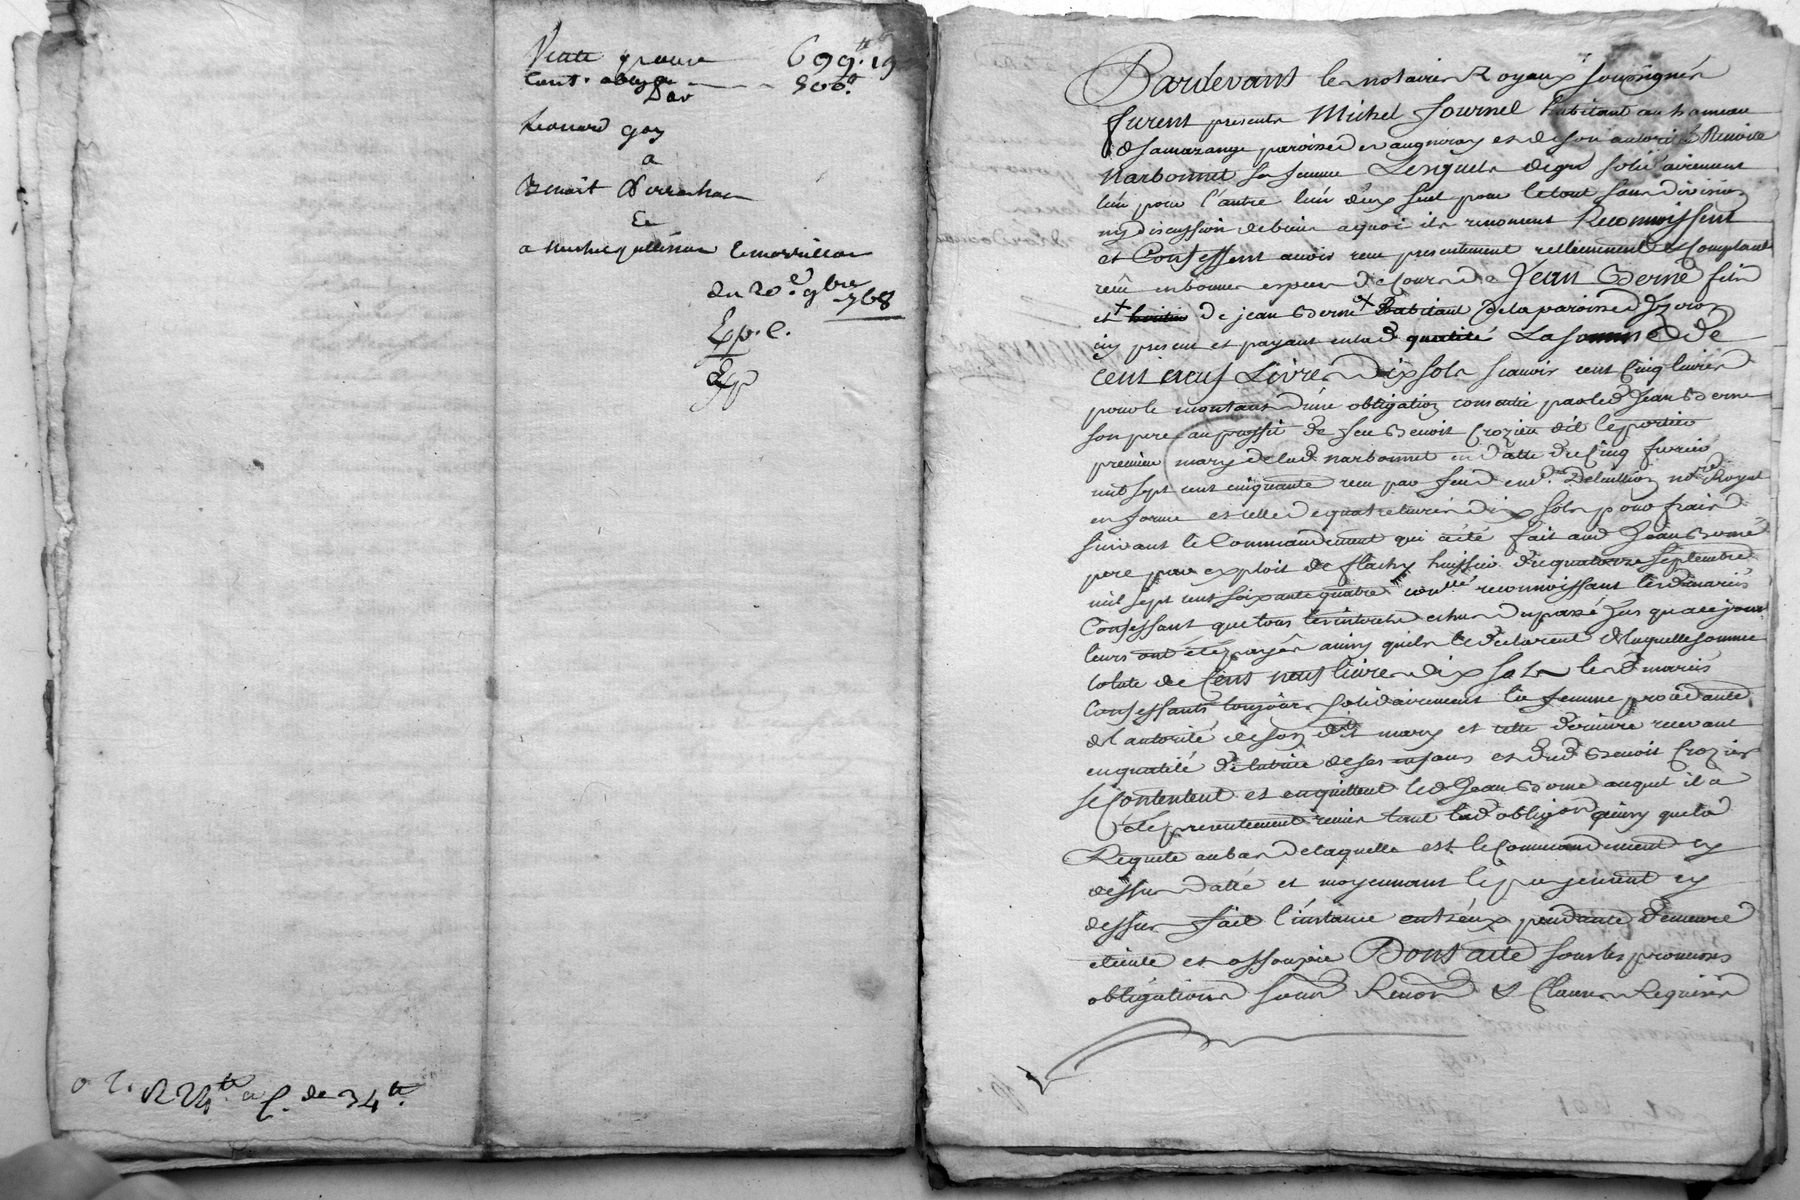 Vente pour 699.tt 19
Cont. oblig.on 506.tt
Par
Leonard goy
a
Benoit
Et
a
du 20.e 9bre 1768
Exp. e.
Exp
R 24tt a C. de 34tt.
Pardevant les notaires Royaux soussignés
furent presents Michel Journel habitant au hameau
de Samarange paroisse de vaugneray et de son autorité Benoite
Narbonnet sa femme Lesquels de gré solidairement
l'un pour l'autre l'un d'eux seul pour le tout sans division
ny discussion de biens a quoi ils renoncent Reconnoissent
et Confessent avoir reçu presentement reellement et comptant
reçu en bonnes especes de Cours de Jean Berne fils
et de jean Berne habitant de la paroisse d'
icy present et payant en lad. qualité La somme de
cent neuf Livres dix sols scavoir cent Cinq livres
pour le montant d'une obligation consentie par led. Jean Berne
son pere au proffit de feu Benoit Crozier dit le
premier mary de lad. Narbonnet en datte du Cinq
mil sept cent cinquante reçu par feu Delaillion no.re Royal
en forme et celle de quatre livres dix sols pour frais
suivant le Commandement qui a eté fait aud. Jean Berne
pere par exploit de flachy huissier du quatorze Septembre
mil sept cent soixante quatre reconnoissant lesd. mariés
Confessant que tous les interets echus du passé jusqu'a ce jour
leurs ont eté payés ainsy qu'ils le declarent de laquelle somme
totale de Cent neuf livres dix sols lesd. mariés
Confessants toujours solidairement la femme procedante
de l'autorité de son dit mary et cette derniere recevant
en qualité de tutrice de ses enfans et dud. Benoit Crozier
se Contentent et en quittent led. Jean Berne auquel il a
eté presentement remis tant lad. obligaon qu'ainsy que la
Requete au bas de laquelle est le Commandement cy
dessus datté et moyennant le payement cy
dessus fait l'instance entr'eux pendante demeure
eteinte et assoupie Dont acte sous les promesses
obligations soum. Renon. & Clauses Requises